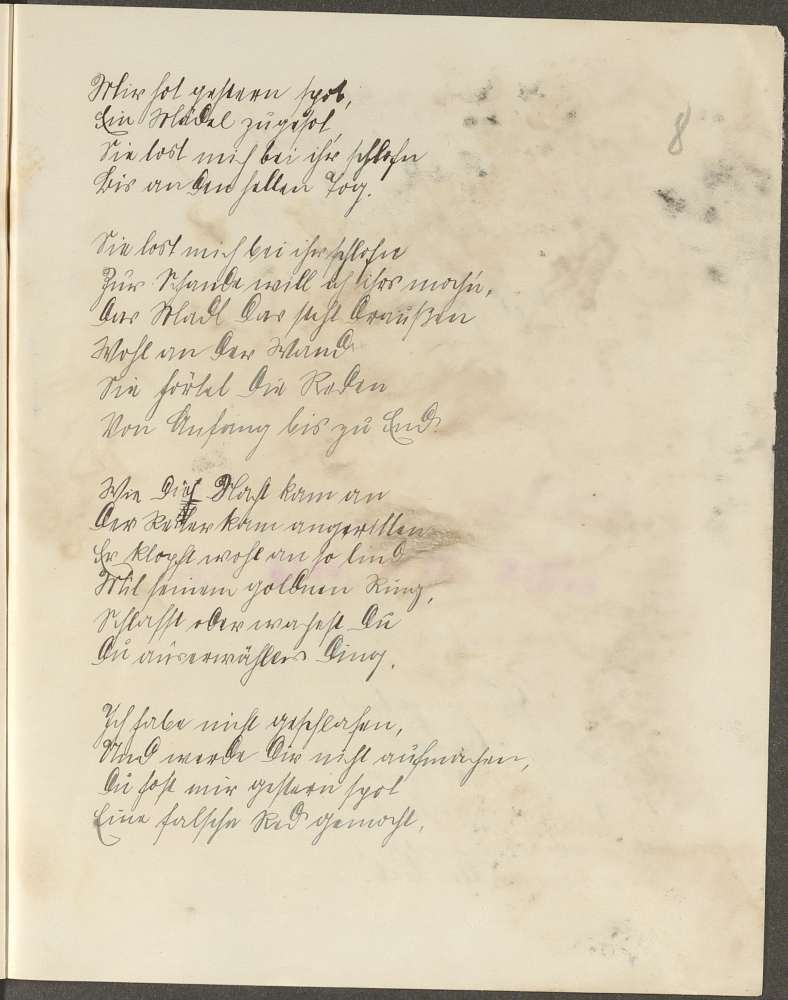 8
Mir hot gestern spot,
Ein Mädel zugesot
Sie lost mich bei ihr schlofn
Bis an den hellen Tog.
Sie lost mich bei ihr schlofn
Zur Schande will ich ihrs mochn,
Das Madl das steht draußen
Wohl an der Wand
Sie hörtet die Reden
Von Anfang bis zu End.
Wie die Nacht kam an
Der Reiter kam angeritten
Er klopft wohl an so lind
Mit seinem goldnen Ring,
Schlafst oder wachest Du
Du auserwähltes Ding.
Ich habe nicht geschlafen,
Und werde Dir nicht aufmachen,
Du host mir gestern spot
Eine falsche Red gemocht.